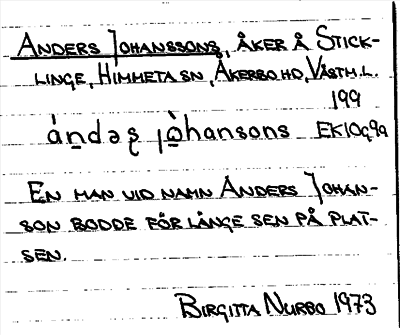 ANDERS JOHANSSONS, ÅKER Å STICK-
LINGE, HIMMETA SN, ÅKERBO HD, VÄSTM.L.
199
án̲dəʂ jò̲hansons EK10g9a
EN MAN VID NAMN ANDERS JOHAN-
SON BODDE FÖR LÄNGE SEN PÅ PLAT-
SEN.
BIRGITTA NURBO 1973